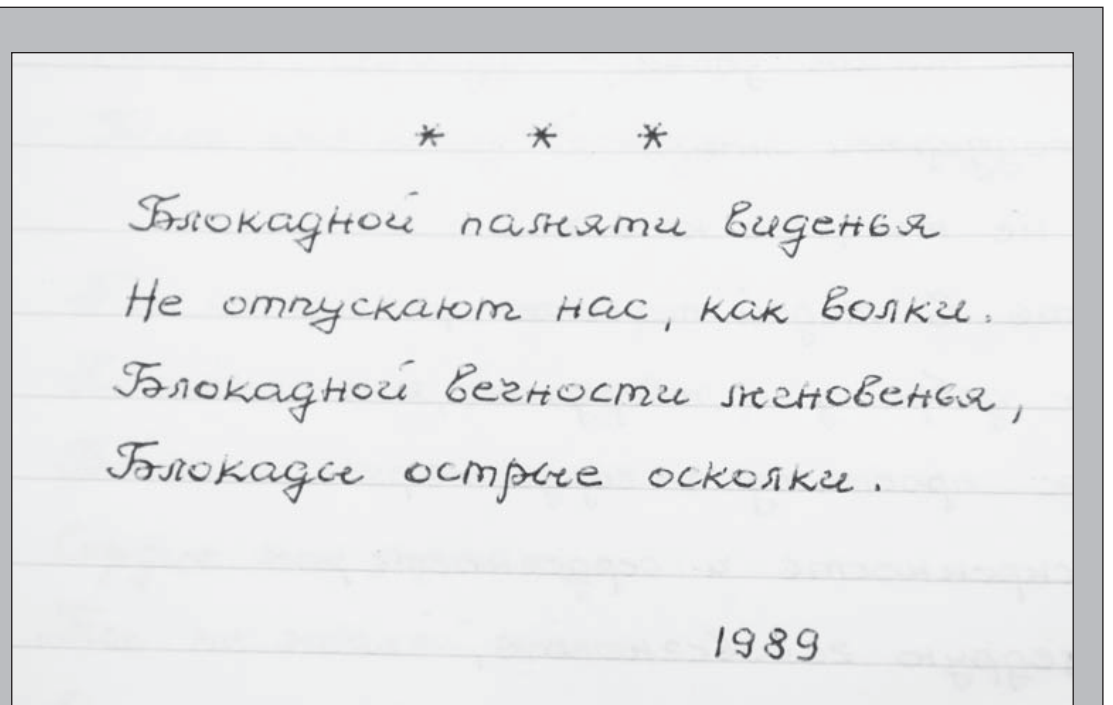 * * *
Блокадной памяти виденья
Не отпускают нас, как волки.
Блокадной вечности мгновенья,
Блокады острые осколки.
1989